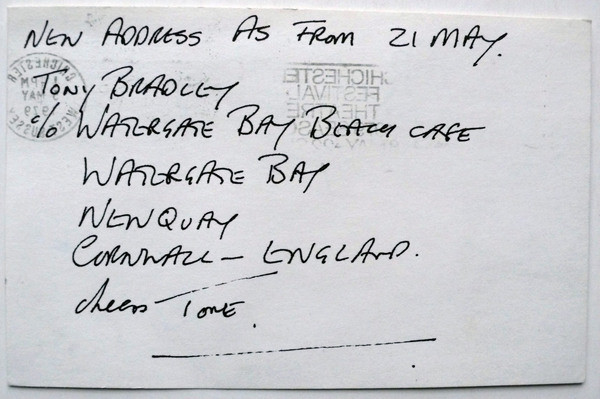 NEW ADDRESS AS FROM 21 MAY.
TONY BRADLEY
c/o WATERGATE BAY BEACH CAFE
WATERGATE BAY
NEWQUAY
CORNWALL – ENGLAND.
cheers Tone.
CHICHESTER
FESTIVAL
THEATRE
CHICHESTER
PM
MAY
1979